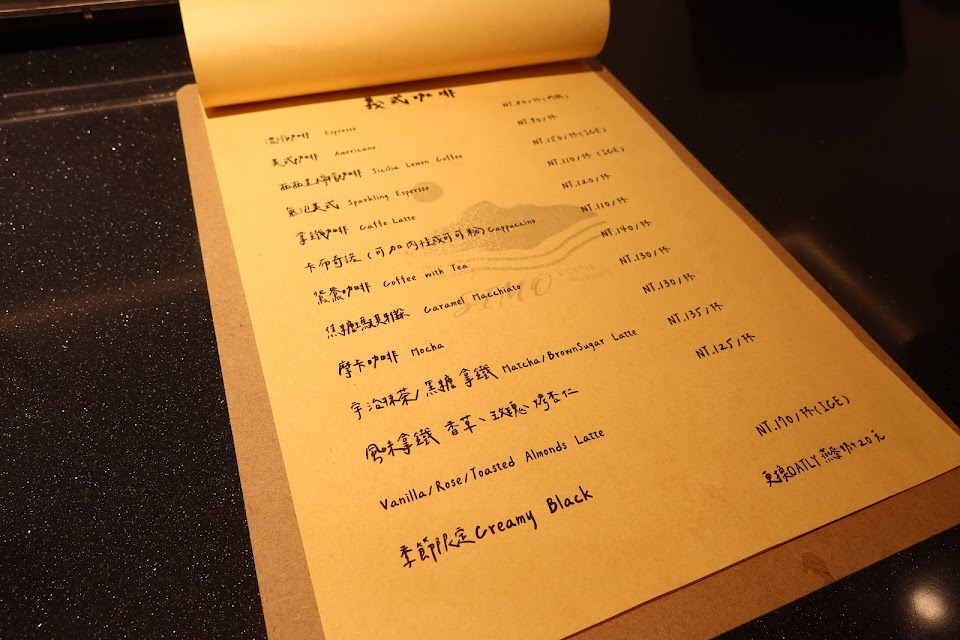 義式咖啡
濃縮咖啡 Espresso NT.80/杯
美式咖啡 Americano NT.90/杯
西西里檸檬咖啡 Sicilia Lemon Coffee NT.150/杯(ICE)
氣泡美式 Sparkling Espresso NT.110/杯 (ICE)
拿鐵咖啡 Caffe Latte NT.120/杯
卡布奇諾 (可加肉桂或可可粉) Cappuccino NT.110/杯
鴛鴦咖啡 Coffee with Tea NT.140/杯
焦糖瑪其雅朵 Caramel Macchiato NT.130/杯
摩卡咖啡 Mocha NT.130/杯
宇治抹茶/黑糖拿鐵 Matcha/BrownSugar Latte NT.135/杯
風味拿鐵 香草、玫瑰、烤杏仁 NT.125/杯
Vanilla/Rose/Toasted Almonds Latte
季節限定Creamy Black NT.170/杯(ICE)
更換OATLY燕麥奶+20元
SIMO